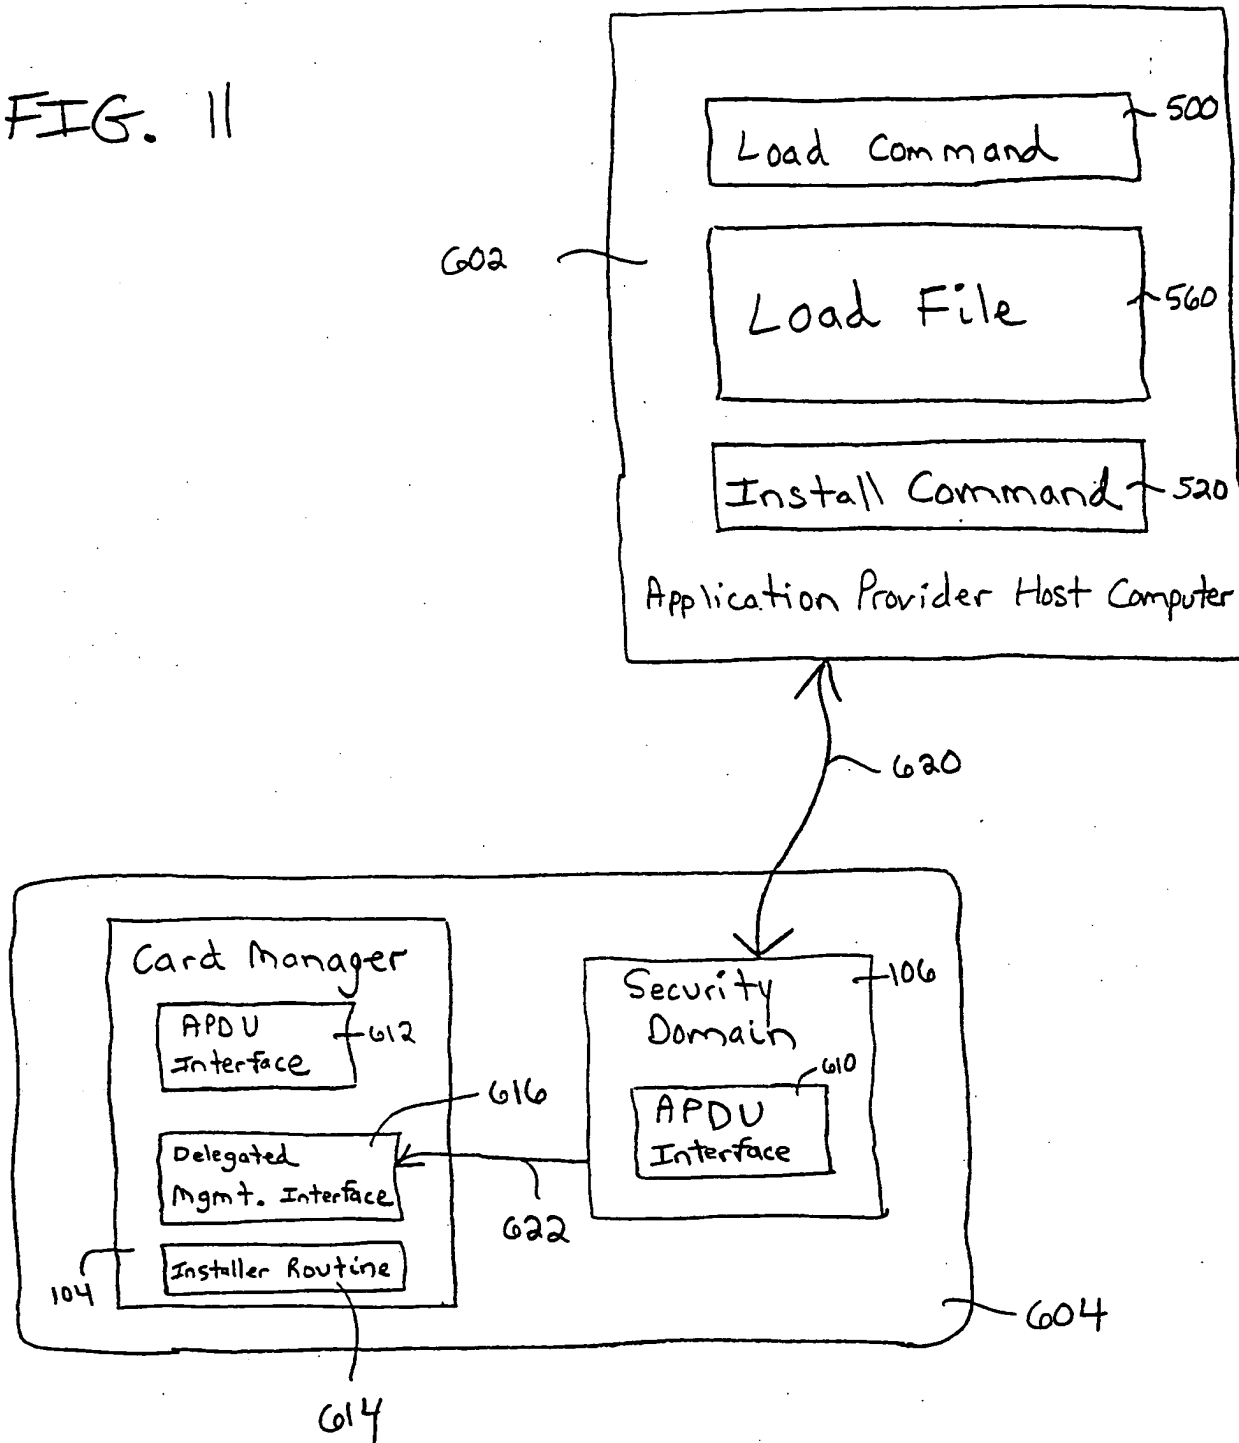 FIG. 11
500
Load Command
602
Load File
560
Install Command
520
Application Provider Host Computer
620
Card Manager
APDU
Interface
612
616
Delegated
Mgmt. Interface
622
Installer Routine
104
614
Security
Domain
106
610
APDU
Interface
604